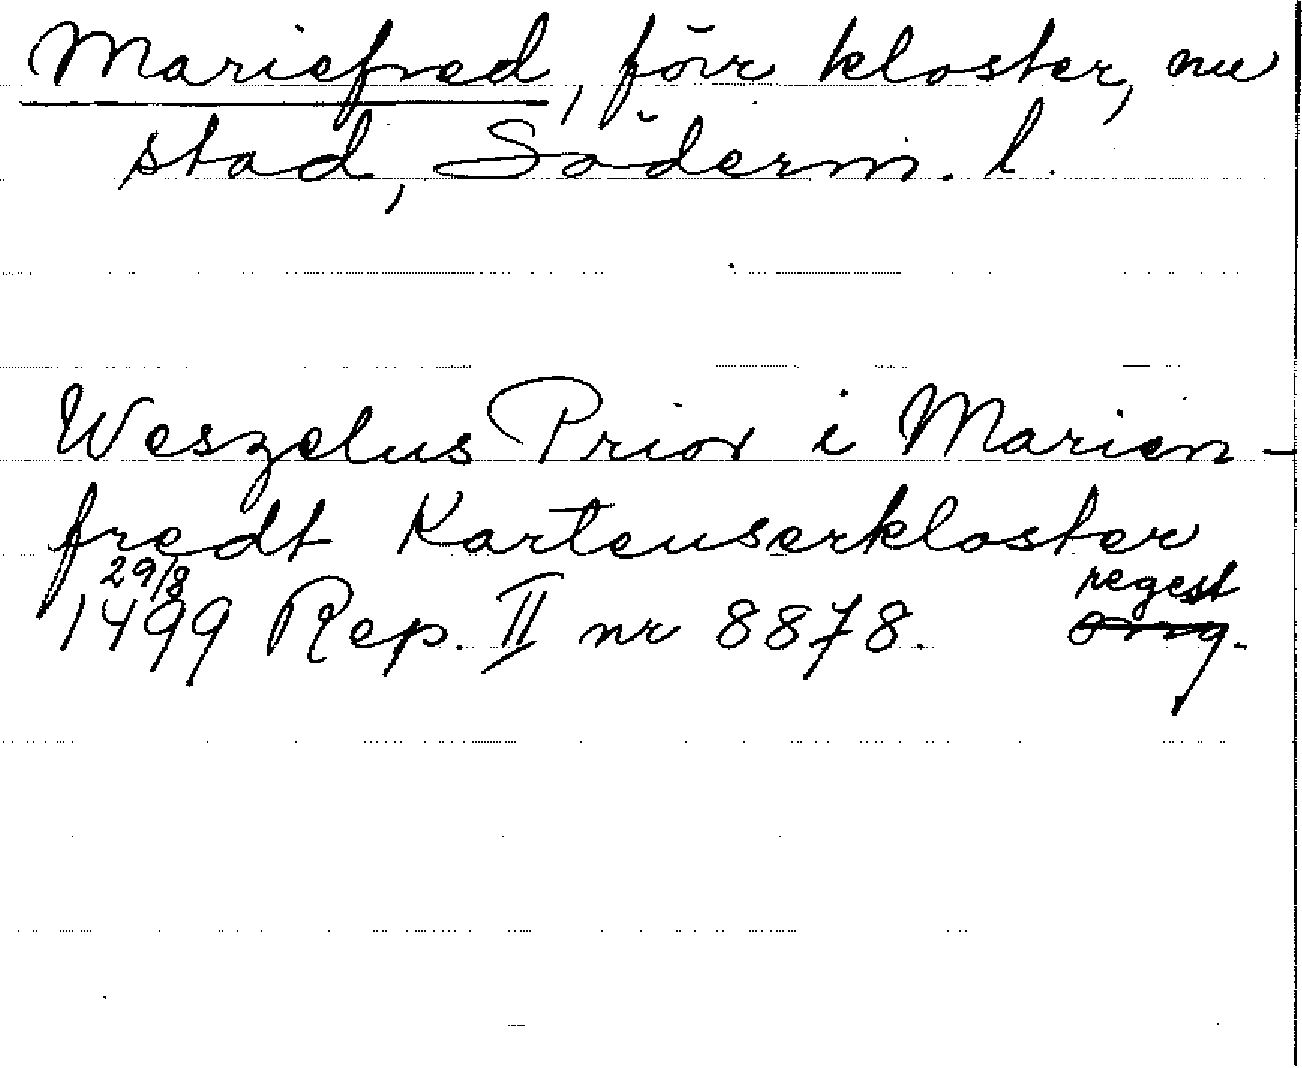 Mariefred, förr kloster, nu
stad, Söderm. l.
Weszelus Prior i Marien-
fredt Karteuserkloster
29/8 regest
1499 Rep. II nr 8878. orig.